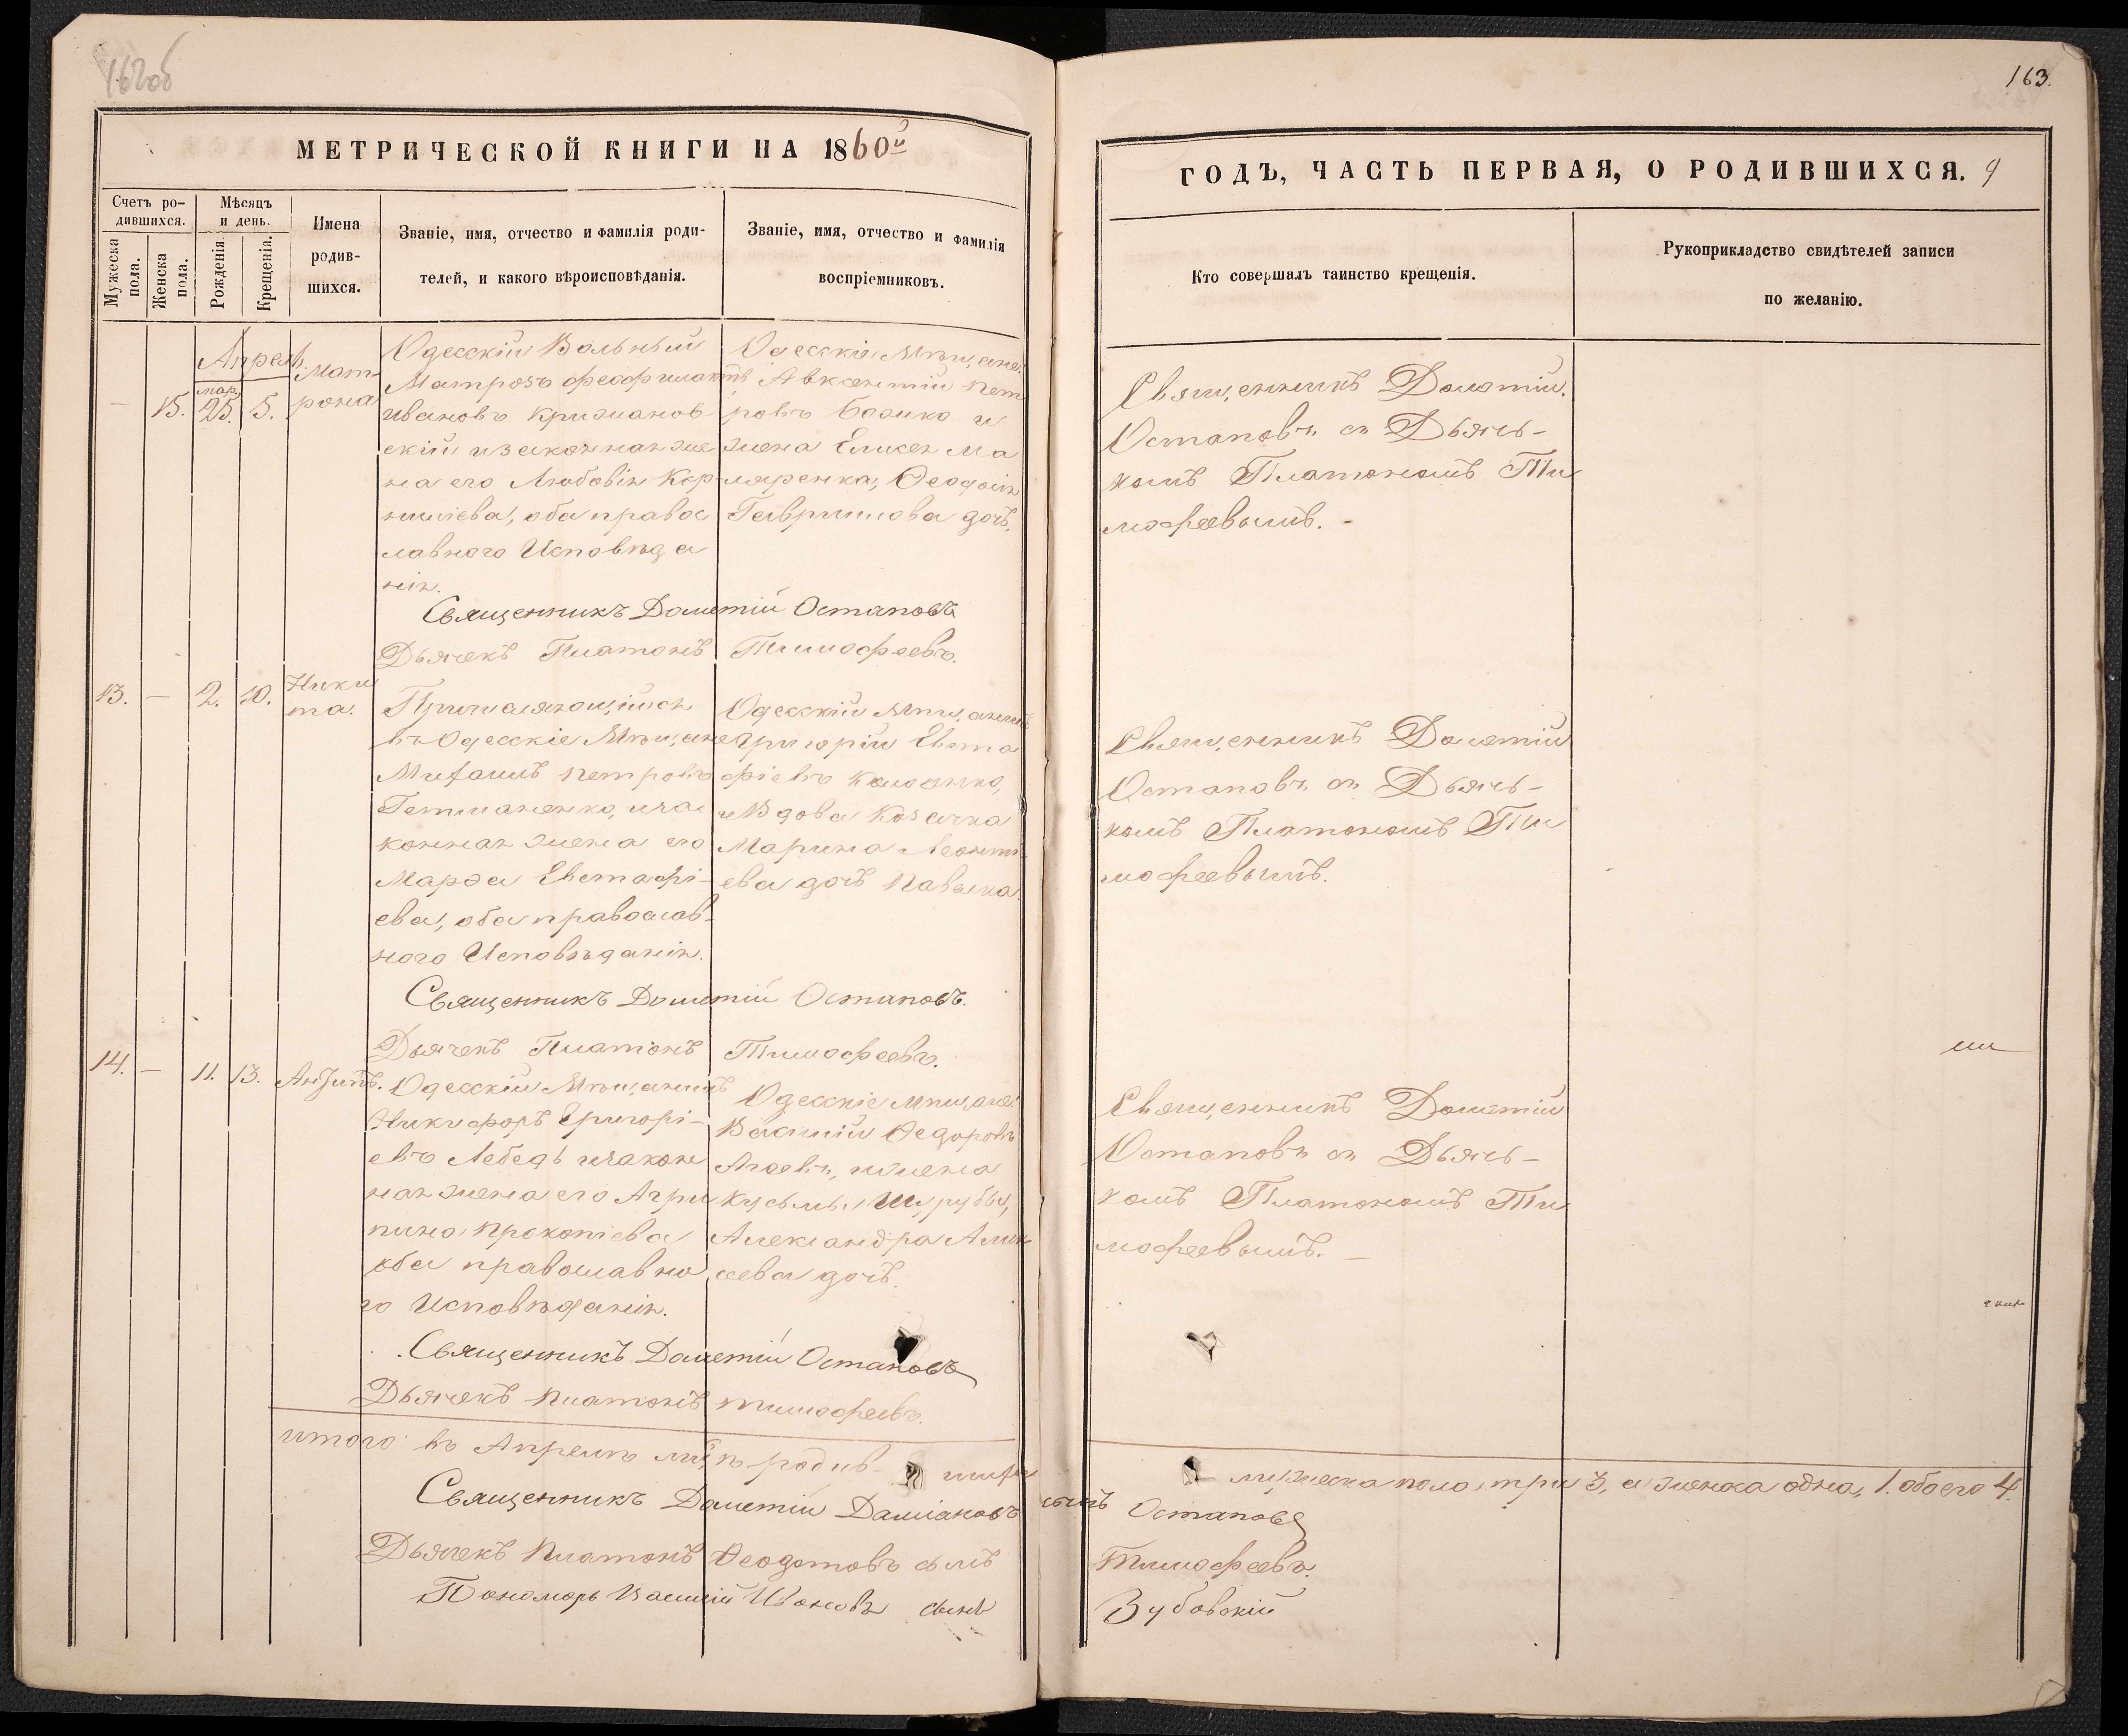 162об
163.
МЕТРИЧЕСКОЙ КНИГИ НА 1860й
ГОДЪ, ЧАСТЬ ПЕРВАЯ, О РОДИВШИХСЯ. 9
Счетъ ро-
дившихся.
Мужеска
пола.
Женска
пола.
Мѣсяцъ
и день.
Рожденія.
Крещенія.
Имена
родив-
шихся.
Званіе, имя, отчество и фамилія роди-
телей, и какого вѣроисповѣданія.
Званіе, имя, отчество и фамилія
воспріемниковъ.
Кто совершалъ таинство крещенія.
Рукоприкладство свидѣтелей записи
по желанію.
Апрель
мар.
— 15. 25. 5.
Мат-
рона
Одесскій Вольный
Матрозъ Феофилактъ
Ивановъ Крижанов-
скій и законная же
на его Любовія Кор-
нилиева, оба правос
лавного Исповѣда
нія.
Одесскіе Мѣщане:
Авксентій Пет
ровъ Бозико и
жена Елисея Ма
ляренка, Феодосія
Гавриилова дочь.
Священникъ Дометій.
Остаповъ съ Дьячь-
комъ Платономъ Ти
мофеевымъ. -
Священникъ Дометій Остаповъ
Дьячекъ Платонъ Тимофеевъ.
13. — 2. 10.
Ники
та.
Причисляющійся
въ Одесскіе Мѣщане
Михаилъ Петровъ
Гетманенко, и за
конная жена его
Марѳа Евстафі-
ева, оба православ-
ного Исповѣданія.
Одесскій Мѣщанинъ
Григорій Евста
фіевъ
и Вдова Козачка
Марина Леонти-
ева дочь
Священникъ Дометій
Остаповъ съ Дьячь-
комъ Платономъ Ти
мофеевымъ.
Священникъ Дометій Остаповъ.
Дьячекъ Платонъ Тимофеевъ.
14. — 11. 13.
Антипъ.
Одесскій Мѣщанинъ
Никифоръ Григорі-
евъ Лебедь и закон
ная жена его Агри
пина Прокопіева
оба православно
го Исповѣданія.
Одесскіе Мѣщане:
Василій Федоровъ
Агеевъ, и жена
Кузьмы Шурубы,
Александра Алек
сеева дочь.
Священникъ Дометій
Остаповъ съ Дьячь-
комъ Платономъ Ти
мофеевымъ. —
Священникъ Дометій Остаповъ
Дьячекъ Платонъ Тимофеевъ.
итого въ Апрелѣ мцѣ родив- шихся мужеска пола три 3, а женска одна, 1. обоего 4.
Священникъ Дометій Даміановъ сынъ Остаповъ
Дьячекъ Платонъ Феодотовъ сынъ Тимофеевъ.
Пономарь Василій Ивановъ сынъ Зубовскій